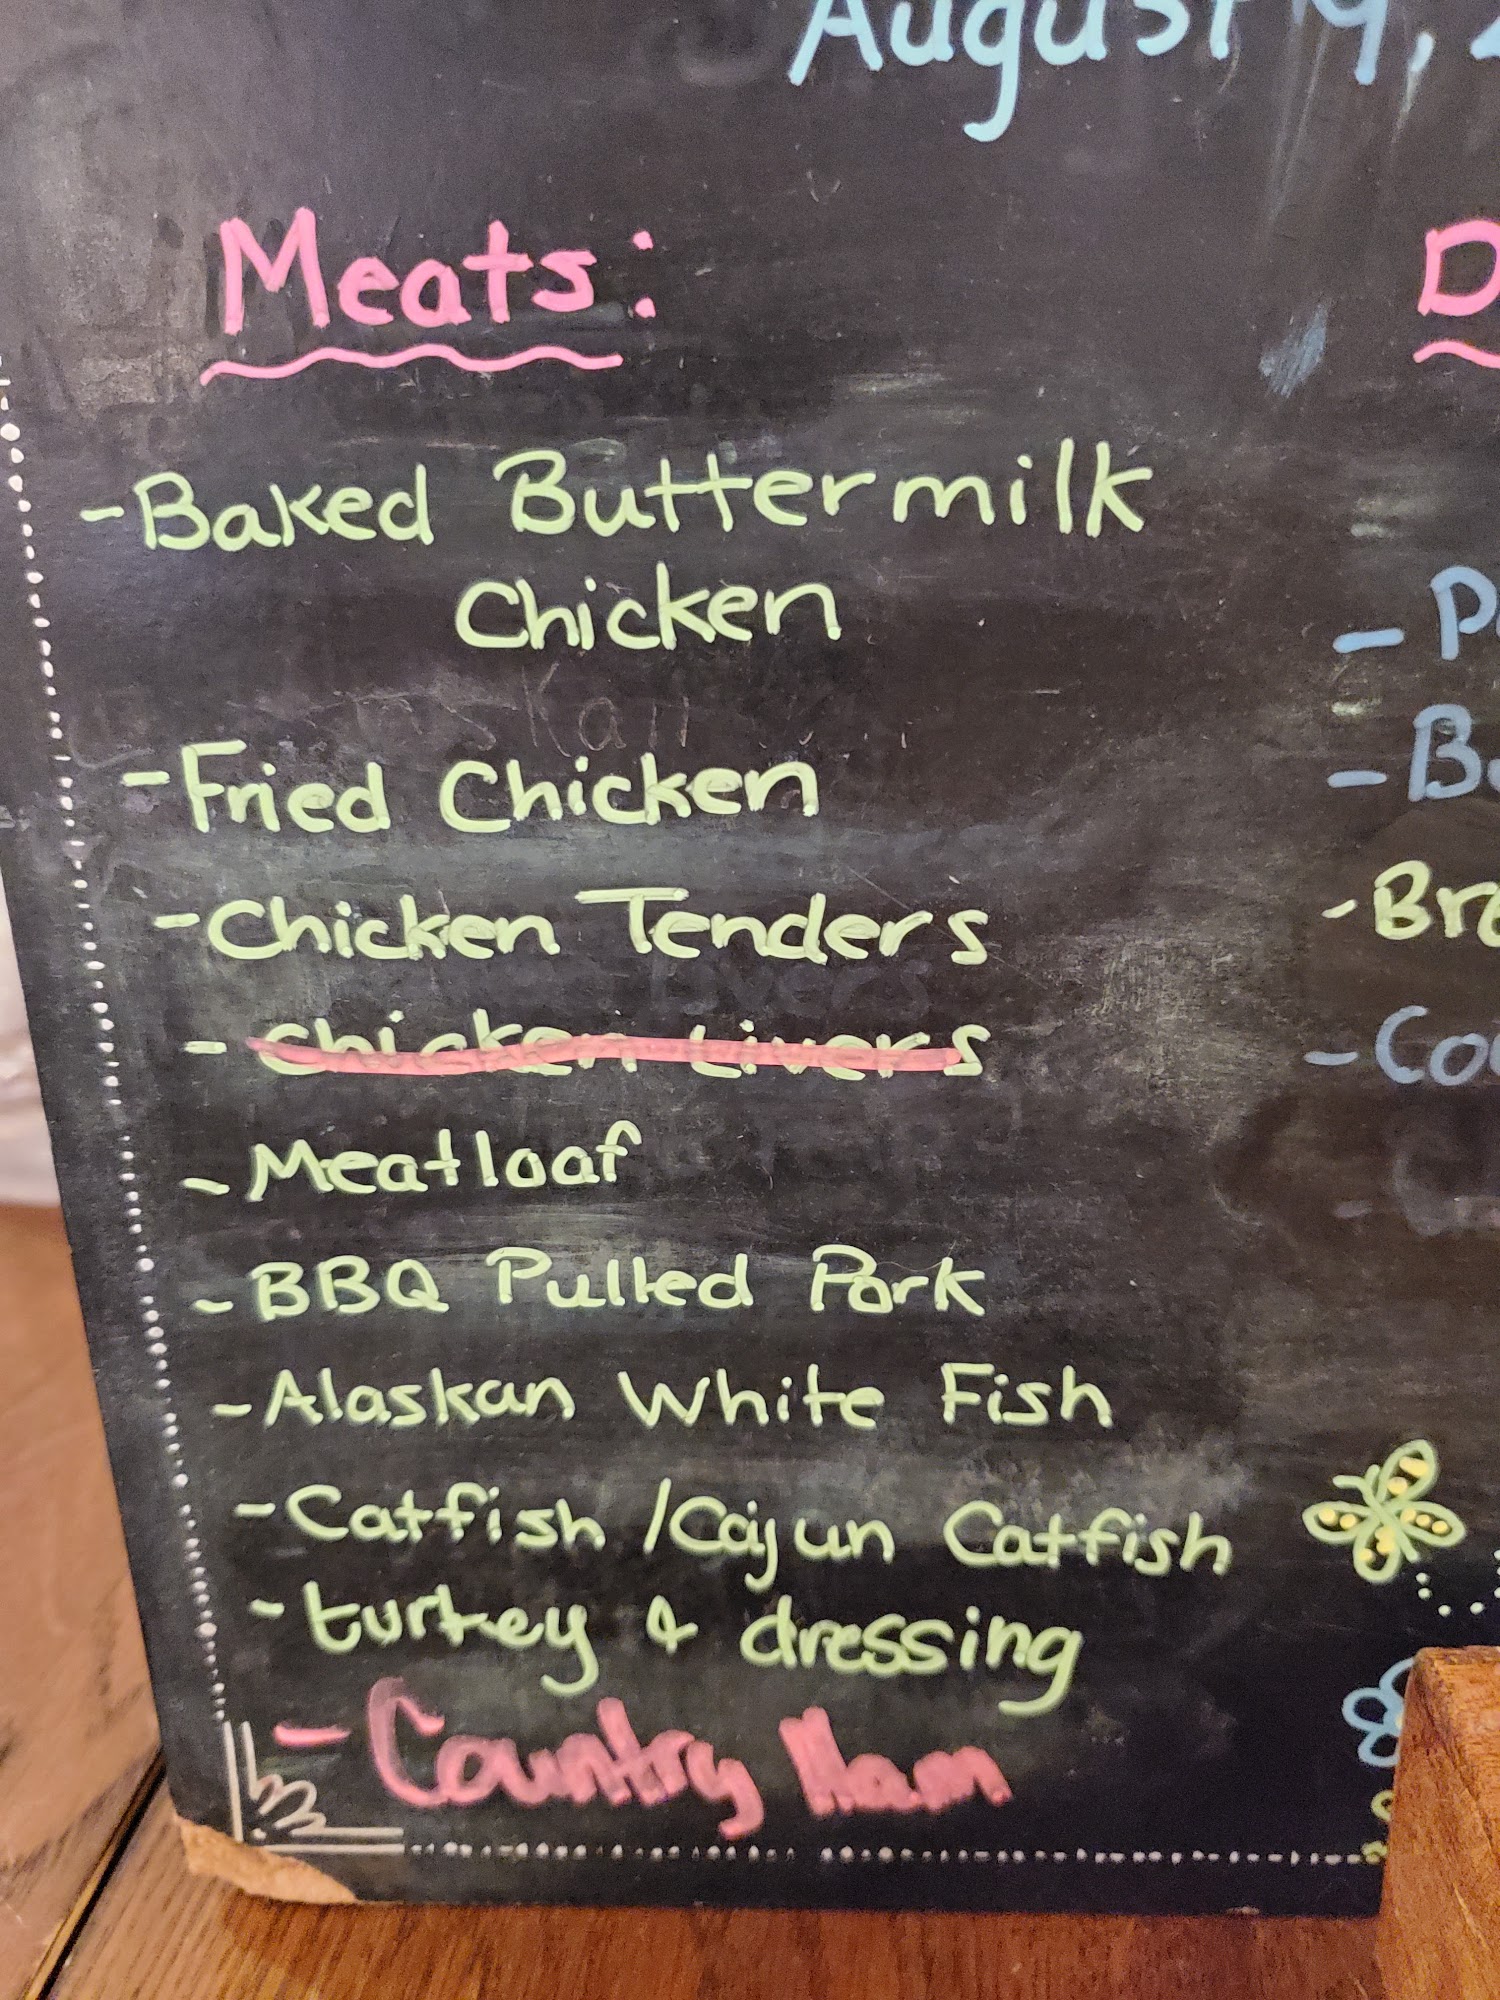 August 9, 2
Meats:
D
- Baked Buttermilk
Chicken
- P
- Fried Chicken
- B
- Chicken Tenders
- Bro
- Chicken Livers
- Co
- Meatloaf
- BBQ Pulled Pork
- Alaskan White Fish
- Catfish / Cajun Catfish
- turkey & dressing
- Country Ham